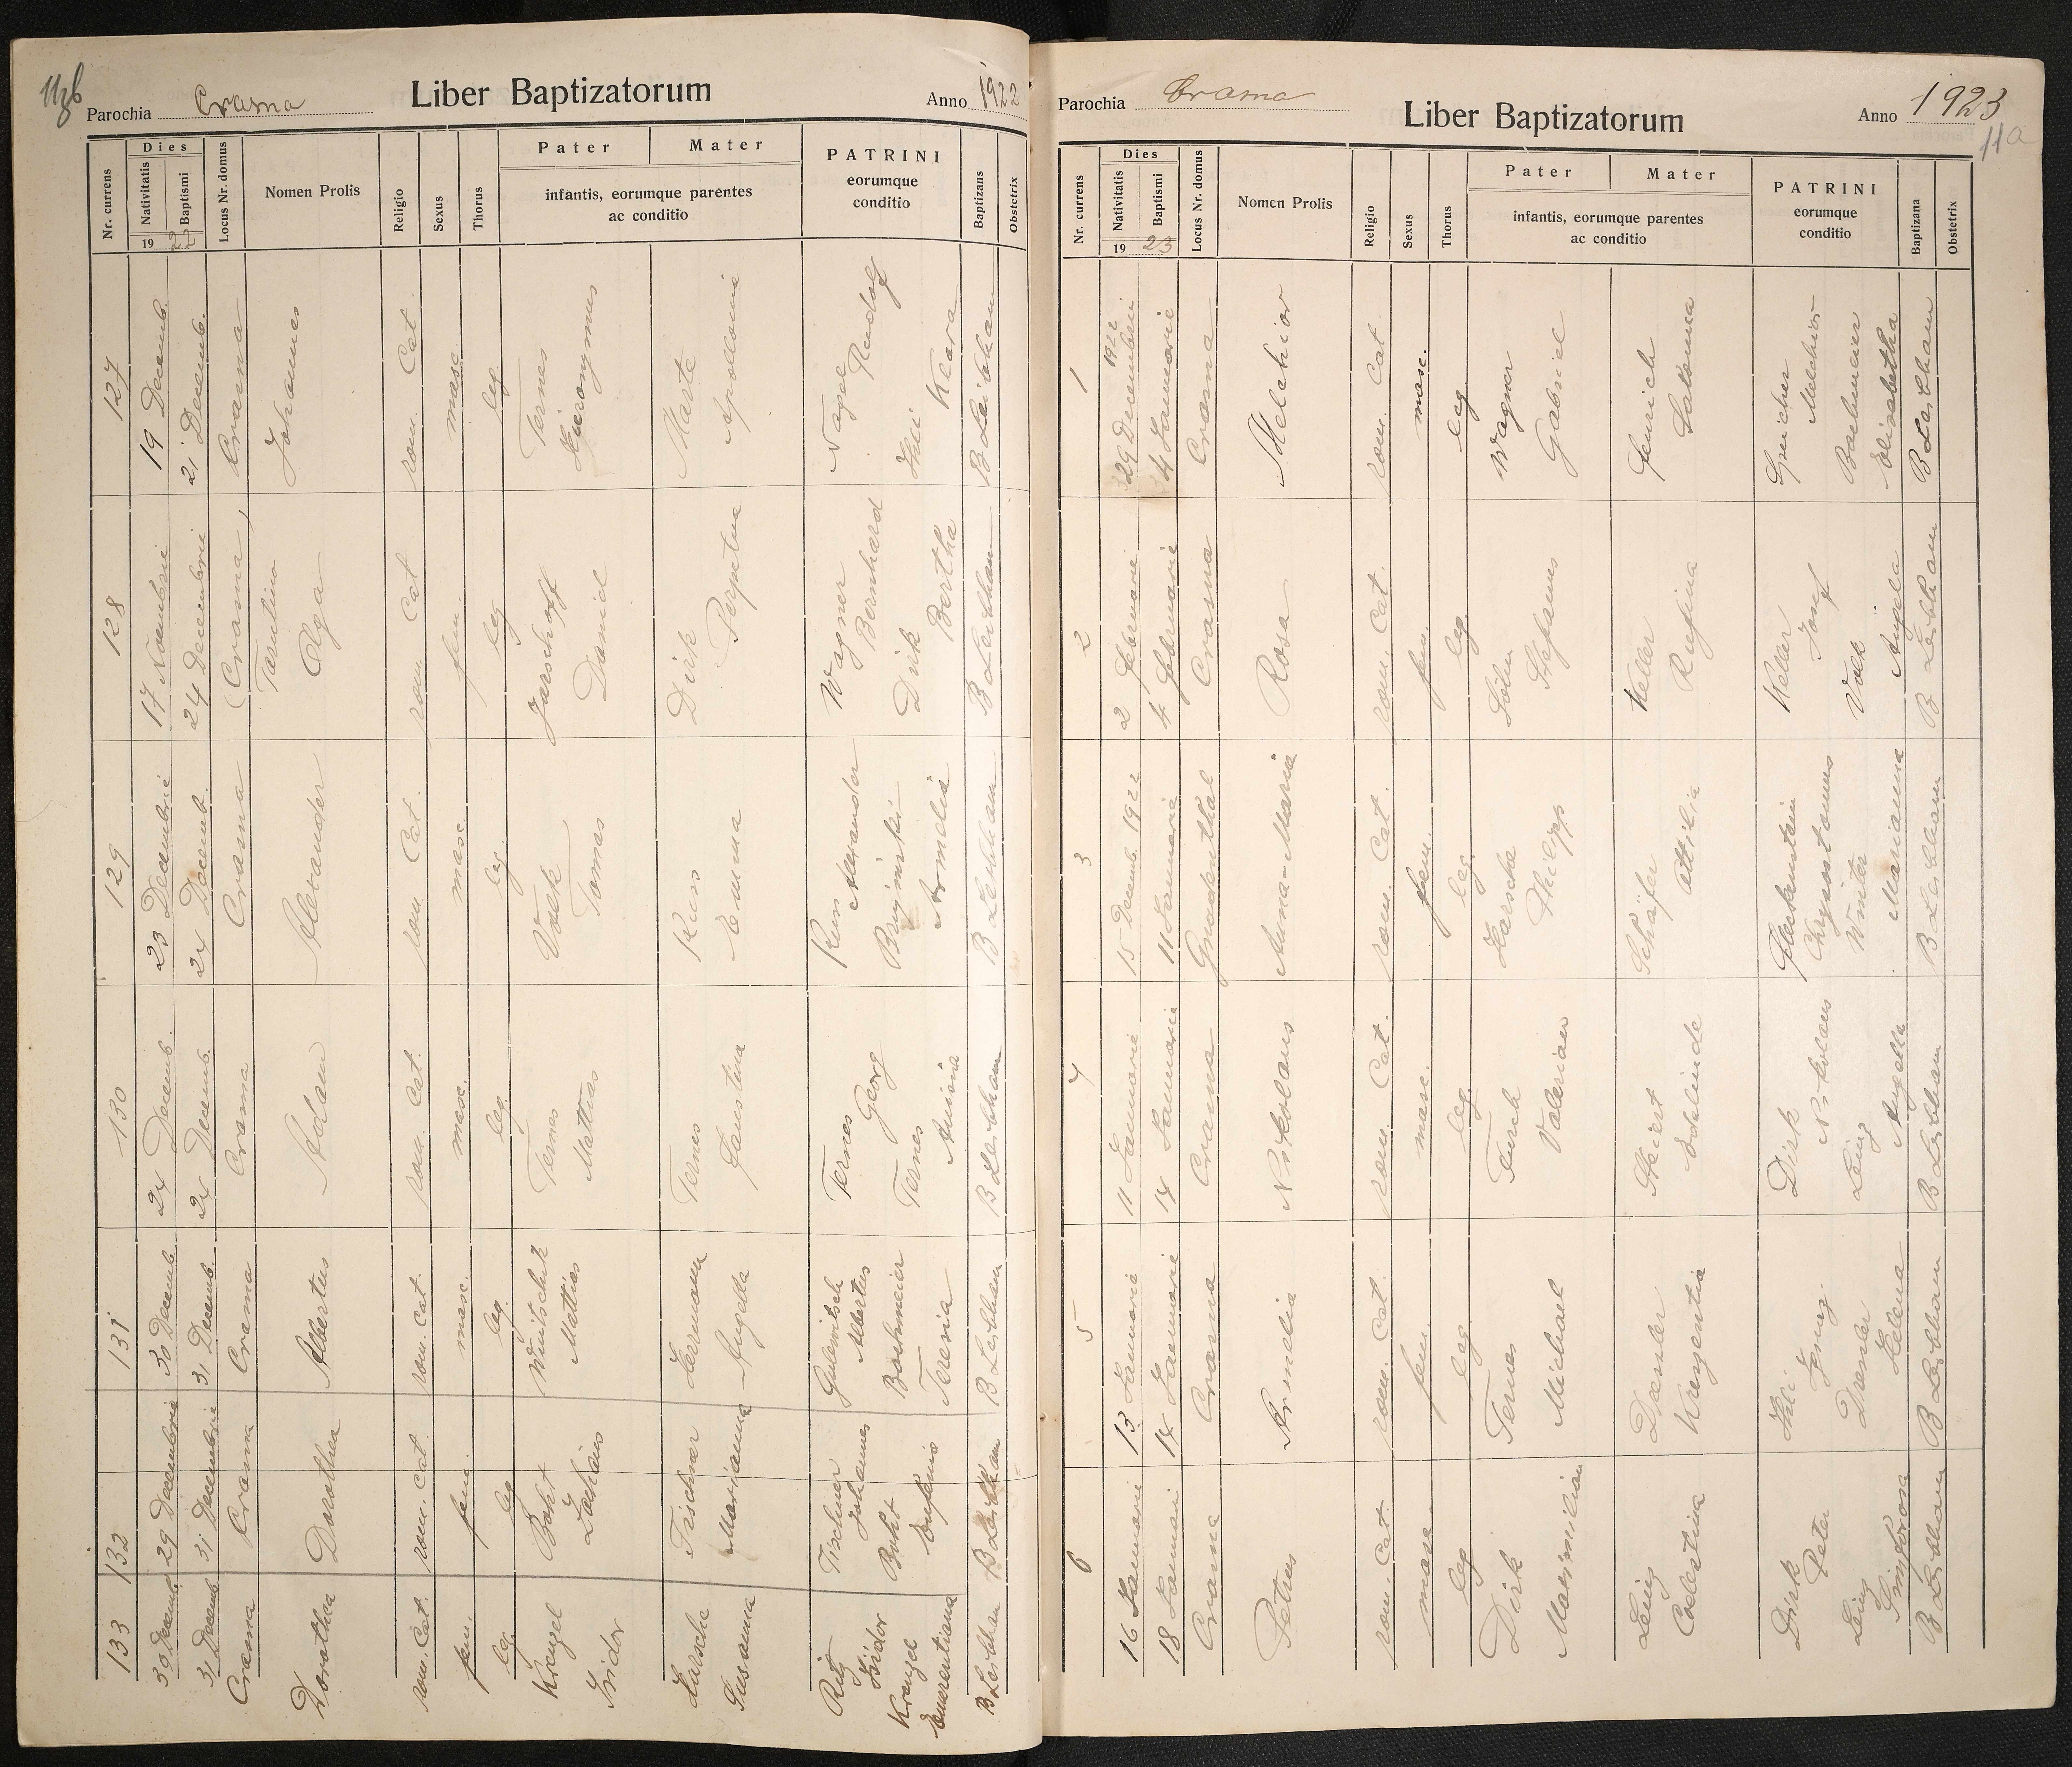 11b
Parochia Crasna
Liber Baptizatorum
Anno 1922
Nr. currens
Dies
Nativitatis
Baptismi
19 22
Locus Nr. domus
Nomen Prolis
Religio
Sexus
Thorus
Pater
Mater
infantis, eorumque parentes
ac conditio
PATRINI
eorumque
conditio
Baptizans
Obstetrix
127
19 Decemb.
21 Decemb.
Crasna
Johannes
rom. Cat.
masc.
leg.
Ternes
Hieronymus
Marte
Apollonia
Nagel
Rudolf
Klara
B Leibham
128
17 Novembrie
24 Decembrie
Crasna
Tarutino
Olga
rom. Cat
fem.
leg
Jarschoff
Daniel
Dirk
Perpetua
Wagner
Bernhard
Dirk
Bertha
B Leibham
129
23 Decembrie
24 Decemb.
Crasna
Alexander
rom. Cat.
masc.
leg.
Volk
Tomas
Kuss
Emma
Kuss
Alexander
Armelia
B Leibham
130
24 Decemb.
24 Decemb.
Crasna
Adam
rom. Cat.
masc.
leg.
Ternes
Mattias
Ternes
Faustina
Ternes
Georg
Ternes
B Leibham
131
30 Decemb.
31 Decemb.
Crasna
Albertus
rom. Cat.
masc.
leg.
Mattias
Herrmann
Angella
Albertus
Bachmeier
Teresia
B Leibham
132
29 Decembrie
31 Decembrie
Crasna
Dorothea
rom. Cat.
fem.
leg
Zachäus
Fischner
Marianna
Fischner
Johannes
Eufemia
B Leibham
133
30 Decemb.
31 Decemb.
Crasna
Dorothea
rom. Cat.
fem.
leg.
Krenzel
Isidor
Harsche
Susanna
Ritz
Isidor
Krenzel
Emerentiana
B Leibham
Parochia Crasna
Liber Baptizatorum
Anno 1923
11a
Nr. currens
Dies
Nativitatis
Baptismi
19 23
Locus Nr. domus
Nomen Prolis
Religio
Sexus
Thorus
Pater
Mater
infantis, eorumque parentes
ac conditio
PATRINI
eorumque
conditio
Baptizana
Obstetrix
1
29 Decembrie 1922
4 Januarie
Crasna
Melchior
rom. Cat.
masc.
leg
Wagner
Gabriel
Jenrich
Salomea
Speicher
Melchior
Bachmeier
Elisabetha
B Leibham
2
2 Februarie
4 Februarie
Crasna
Rosa
rom. Cat.
fem.
leg
Söhn
Stefanus
Keller
Rufina
Keller
Josef
Volk
Angela
B Leibham
3
15 Decemb. 1922
11 Januarie
Gnadenthal
Anna-Maria
rom. Cat.
fem.
leg.
Harsche
Philipp
Schäfer
Ottilia
Gleckenstein
Chrysostomus
Winter
Marianna
B Leibham
4
11 Januarie
14 Januarie
Crasna
Nikolaus
rom. Cat.
masc.
leg.
Furch
Valerian
Steiert
Odelinde
Dirk
Nikolaus
Leinz
Angella
B Leibham
5
13 Januarie
14 Januarie
Crasna
Armelia
rom. Cat.
fem.
leg.
Ternes
Michael
Drexler
Kreszentia
Drexler
Helena
B Leibham
6
16 Januarie
18 Januari
Crasna
Petrus
rom. Cat.
masc.
leg
Dirk
Maximilian
Leinz
Coelestina
Dirk
Peter
Leinz
Simforosa
B Leibham